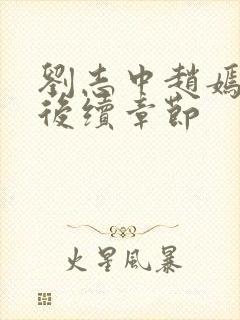 劉志中趙嫣
後續章節
火星風暴